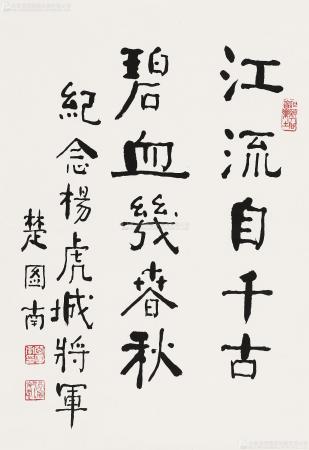 江流自千古
碧血幾春秋
紀念楊虎城將軍
楚圖南